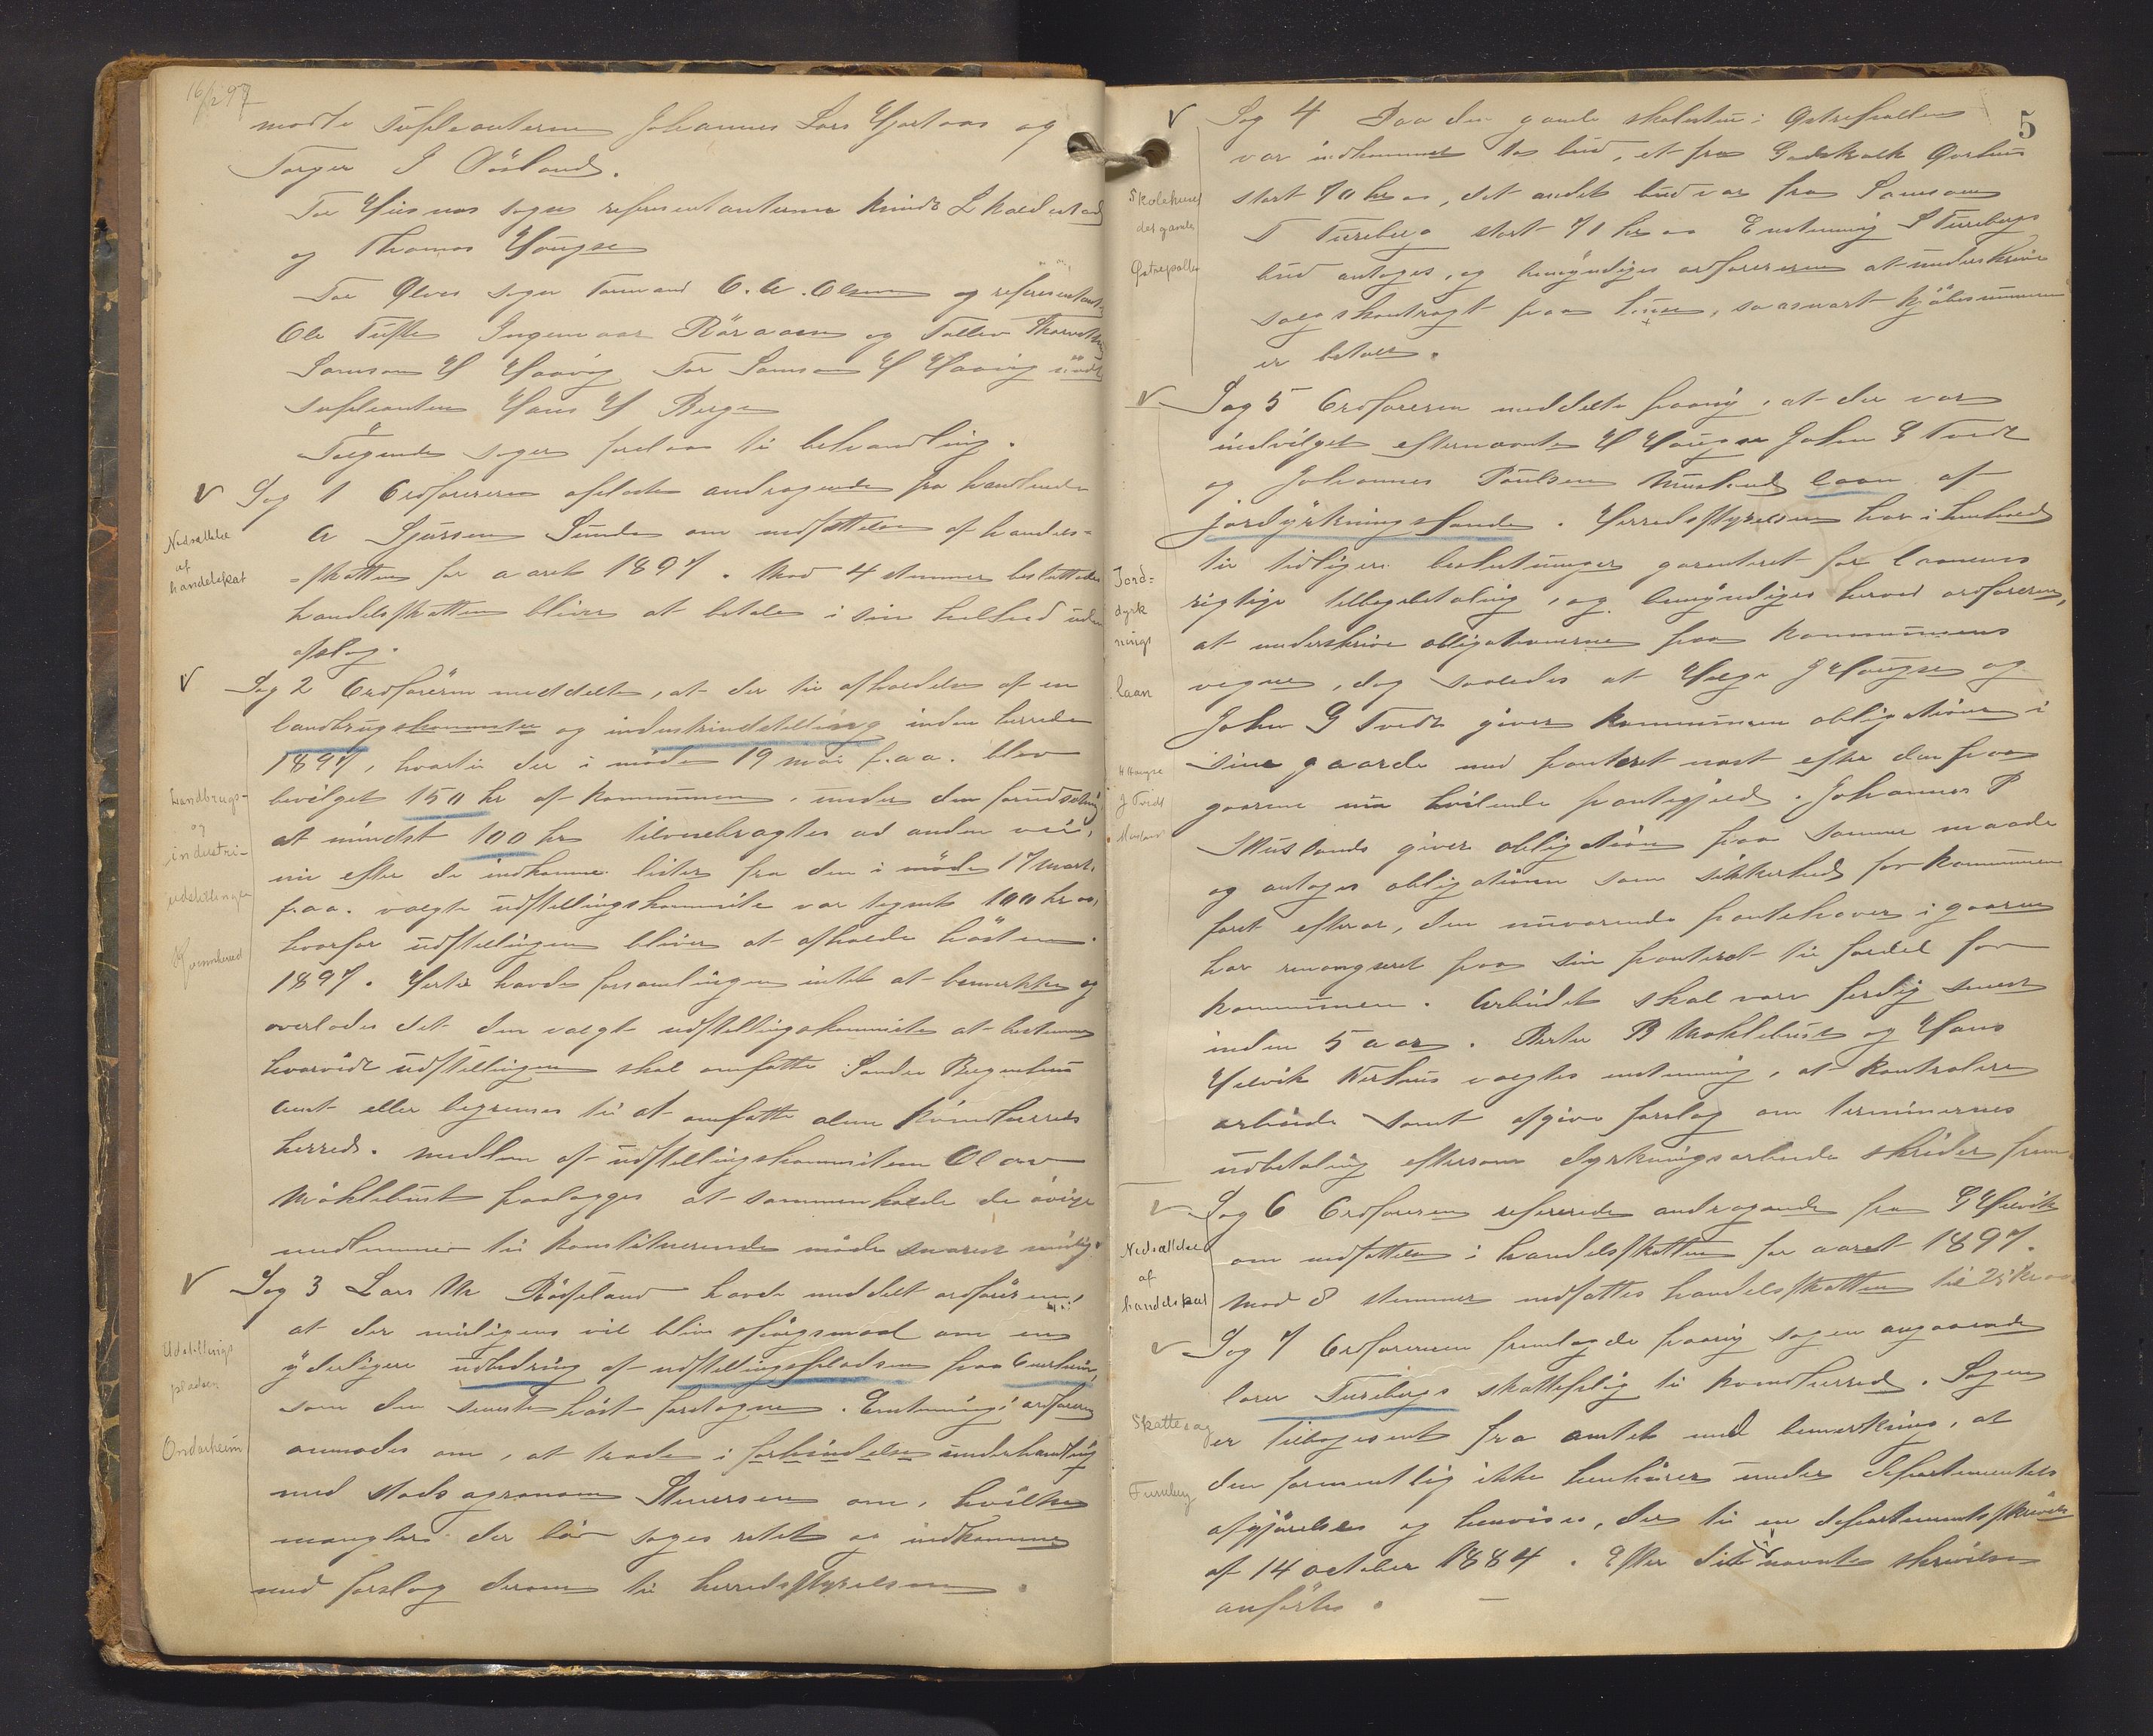 16/2 97
mødte supleanterne Johannes Lars Hjortaas og
Torger J Døsland.
For Husnes sogn representanterne Knud L Kaldestad
og Thomas Haugse
For Ølves sogn formand O. A. Olsen og representant
Ole Tufte Ingemar Røraasen og Tollev
Samson H Haavig. For Samson H Haavig mødte
supleanten Hans H Berge
Følgende sager forelaa til behandling.
Nedsættelse
af
handelsskat
Sag 1 Ordføreren oplæste andragende fra handlende
A Sjursen Sunde om nedsættelse af handels-
-skatten for aaret 1897. Mod 4 stemmer besluttedes
handelsskatten bliver at betale i sin helhed uden
afslag.
Landbrugs-
og
industri-
udstillingen
Kvinnherred
Sag 2 Ordføreren meddelte, at der til afholdelse af en
landbrugs og industriudstilling inden herredet
1897, hvortil der i møde 19 mai f.a.a. blev
bevilget 150 kr af kommunen, under den forudsætning
at mindst 100 kr tilveiebragtes ad anden vei,
nu efter de indkomne lister fra den i møde 17 marts
f.a.a. valgte udstillingskommite var tegnet 100 kr oo,
hvorfor udstillingen bliver at afholde høsten
1897. Hertil havde forsamlingen intet at bemerke og
overlodes det den valgte udstillingskommite at bestemme
hvorvidt udstillingen skal omfatte Søndre Bergenhus
amt eller begrænses til at omfatte alene Kvindherreds
herred. Medlem af udstillingskommiteen Olav
Møklebust paalægges at sammenkalde de øvrige
medlemmer til konstituerende møde snarest muligt.
Udstillings
pladsen
Omdarheim
Sag 3 Lars M Rødseland havde meddelt ordføreren,
at der muligens vil blive spørgsmaal om en
yderligere udbedring af udstillingspladsen paa Omarheim,
som den seneste høst foretagne. Enstemmig: ordføreren
anmodes om, at træde i forbindelse underhandling
med stadsagronom Stenersen om, hvilke
mangler der bør søges rettet og indkomme
med forslag derom til herredsstyrelsen.
5
Skolehuset
det gamle
Østrepollen
Sag 4 Paa den gamle skolestue i Østrepollen
var indkommet to bud, et fra Godskalk Aarhus
stort 70 kr oo, det andet bud var fra Samson
T Tureberg stort 71 kr oo Enstemmig S Turebergs
bud antages, og bemyndiges ordføreren at underskrive
salgskontragt paa huset, saasnart kjøbesummen
er betalt.
Jord-
dyrk
nings
laan
H Haugse
J Tvedt
Musland
Sag 5 Ordføreren meddelte paany, at der var
indvilget efternævnte H Haugse John G Tvedt
og Johannes Poulsen Musland laan af
jordyrkningsfondet. Herredsstyrelsen har i henhold
til tidligere beslutninger garanteret for laanenes
rigtige tilbagebetaling, og bemyndiges herved ordføreren,
at underskrive obligationerne paa kommunens
vegne, dog saaledes at Helge J Haugse og
John G Tvedt giver kommunen obligationer i
sine gaarde med panteret næst efter den paa
gaarene nu hvilende pantegjæld. Johannes P
Musland giver obligation paa samme maade
og antages obligationen som sikkerhed for kommunen
først efterat, den nuværende pantehaver i gaaren
har renongseret paa sin panteret til fordel for
kommunen. Arbeidet skal være færdig senest
inden 5 aar. Peter B Møklebust og Hans
Helvik Nerhus valgtes enstemmig, at kontrolere
arbeide samt afgive forslag om terminernes
udbetaling eftersom dyrkningsarbeide skrider frem.
Nedsættelse
af
handelsskat
Sag 6 Ordføreren refererede andragende fra G Helvik
om nedsættelse i handelsskatten for aaret 1897.
Mod 8 stemmer nedsattes handelsskatten til 25 kr oo
Skattesag
Tureberg
Sag 7 Ordføreren fremlagde paany sagen angaaende
Turebergs skattepligt til Kvindherred. Sagen
er tilbagesent fra amtet med bemerkning, at
den formentlig ikke henhører under departementets
afgjørelse og henvises, der til en departementsskrivelse
af 14 october 1884. Efter nævnte skrivelse
anførtes.